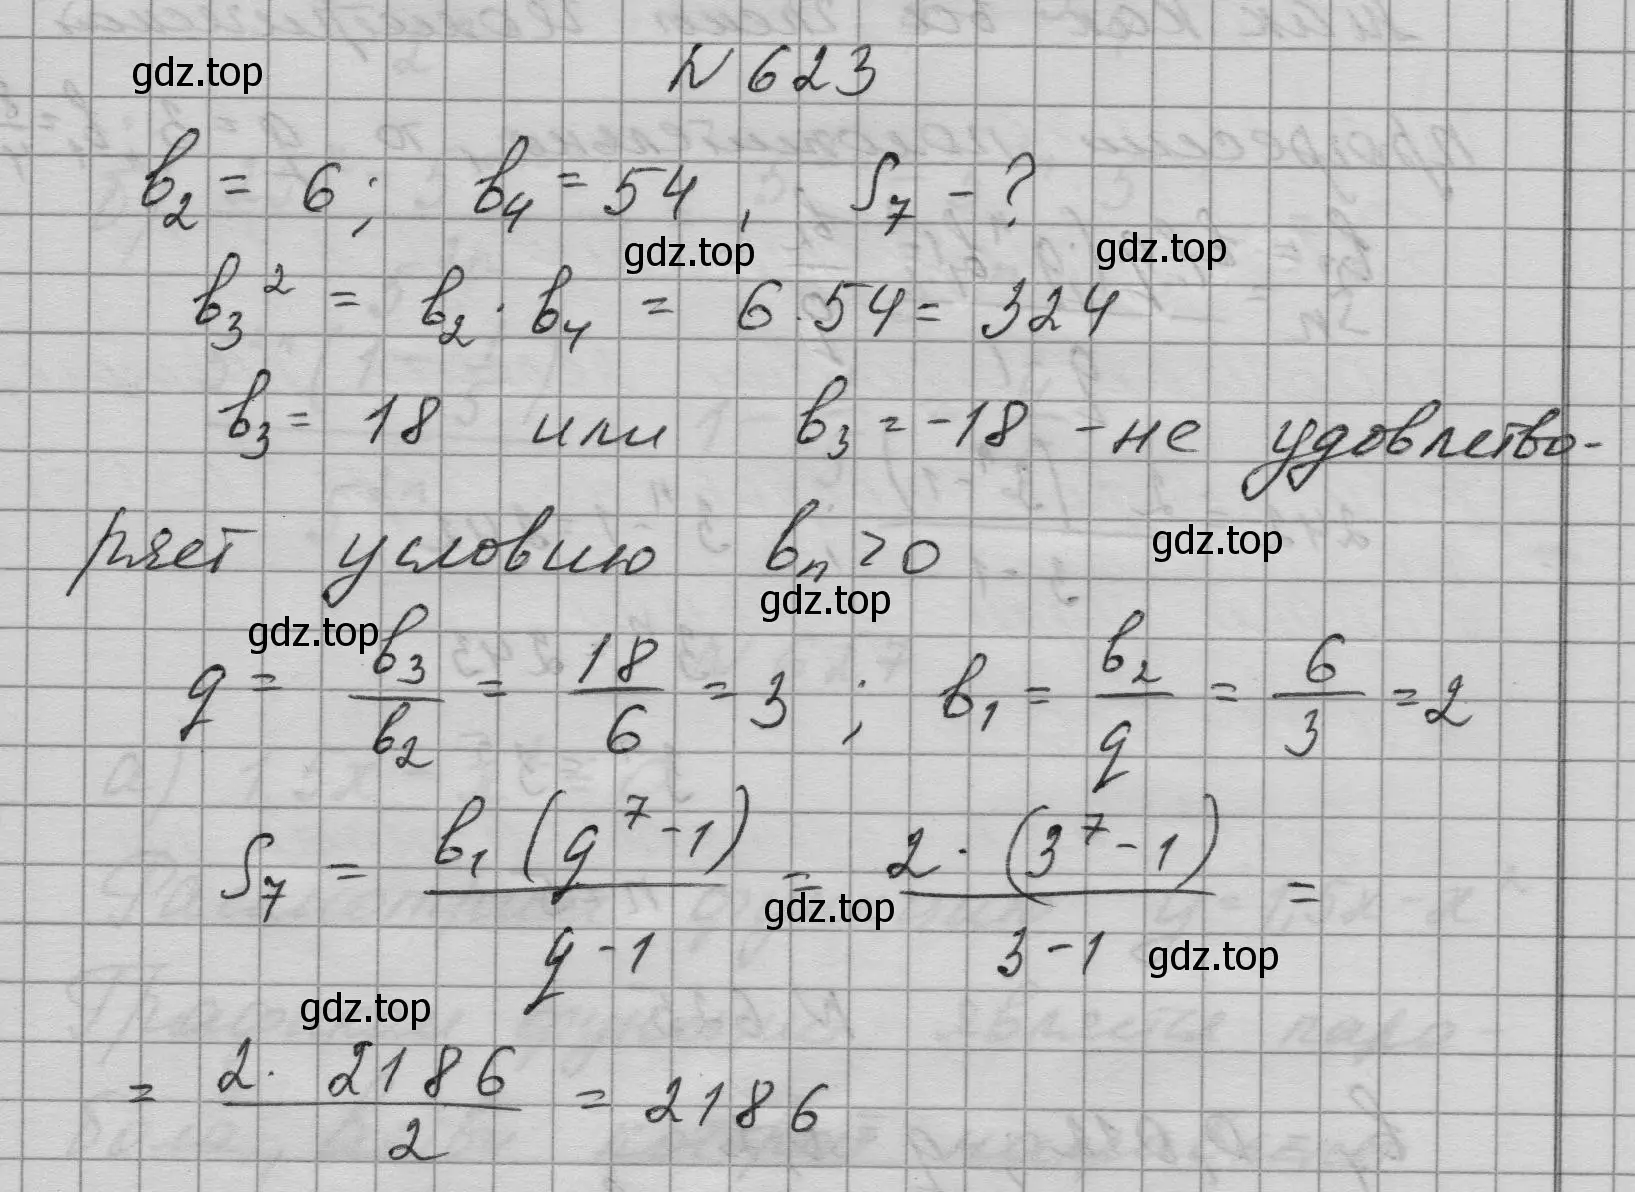 N 623
gdz.top
b₂ = 6; b₄ = 54, S₇ - ?
gdz.top gdz.top
b₃² = b₂ · b₄ = 6 · 54 = 324
b₃ = 18 или b₃ = -18 - не удовлетво-
ряет условию bₙ > 0
gdz.top
gdz.top gdz.top
q = b₃/b₂ = 18/6 = 3; b₁ = b₂/q = 6/3 = 2
S₇ = b₁(q⁷ - 1)/(q - 1) = 2 · (3⁷ - 1)/(3 - 1) =
gdz.top gdz.top
gdz.top
= 2 · 2186/2 = 2186